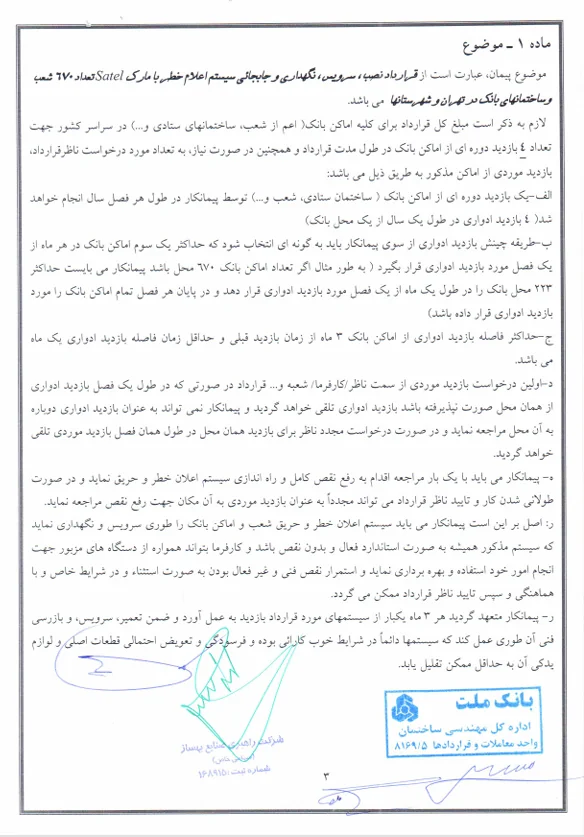 ماده ۱ ـ موضوع
موضوع پیمان، عبارت است از قرارداد نصب، سرویس، نگهداری و جابجائی سیستم اعلام خطر با مارک Satel تعداد ۶۷۰ شعب
و ساختمانهای بانک در تهران و شهرستانها می باشد.
لازم به ذکر است مبلغ کل قرارداد برای کلیه اماکن بانک( اعم از شعب، ساختمانهای ستادی و...) در سراسر کشور جهت
تعداد ٤ بازدید دوره ای از اماکن بانک در طول مدت قرارداد و همچنین در صورت نیاز، به تعداد مورد درخواست ناظرقرارداد،
بازدید موردی از اماکن مذکور به طریق ذیل می باشد:
الف-یک بازدید دوره ای از اماکن بانک ( ساختمان ستادی، شعب و...) توسط پیمانکار در طول هر فصل سال انجام خواهد
شد( ٤ بازدید ادواری در طول یک سال از یک محل بانک)
ب-طریقه چینش بازدید ادواری از سوی پیمانکار باید به گونه ای انتخاب شود که حداکثر یک سوم اماکن بانک در هر ماه از
یک فصل مورد بازدید ادواری قرار بگیرد ( به طور مثال اگر تعداد اماکن بانک ۶۷۰ محل باشد پیمانکار می بایست حداکثر
۲۲۳ محل بانک را در طول یک ماه از یک فصل مورد بازدید ادواری قرار دهد و در پایان هر فصل تمام اماکن بانک را مورد
بازدید ادواری قرار داده باشد)
ج-حداکثر فاصله بازدید ادواری از اماکن بانک ۳ ماه از زمان بازدید قبلی و حداقل زمان فاصله بازدید ادواری یک ماه
می باشد.
د-اولین درخواست بازدید موردی از سمت ناظر/کارفرما/ شعبه و... قرارداد در صورتی که در طول یک فصل بازدید ادواری
از همان محل صورت نپذیرفته باشد بازدید ادواری تلقی خواهد گردید و پیمانکار نمی تواند به عنوان بازدید ادواری دوباره
به آن محل مراجعه نماید و در صورت درخواست مجدد ناظر برای بازدید همان محل در طول همان فصل بازدید موردی تلقی
خواهد گردید.
ه- پیمانکار می باید با یک بار مراجعه اقدام به رفع نقص کامل و راه اندازی سیستم اعلان خطر و حریق نماید و در صورت
طولانی شدن کار و تایید ناظر قرارداد می تواند مجدداً به عنوان بازدید موردی به آن مکان جهت رفع نقص مراجعه نماید.
ر: اصل بر این است پیمانکار می باید سیستم اعلان خطر و حریق شعب و اماکن بانک را طوری سرویس و نگهداری نماید
که سیستم مذکور همیشه به صورت استاندارد فعال و بدون نقص باشد و کارفرما بتواند همواره از دستگاه های مزبور جهت
انجام امور خود استفاده و بهره برداری نماید و استمرار نقص فنی و غیر فعال بودن به صورت استثناء و در شرایط خاص و با
هماهنگی و سپس تایید ناظر قرارداد ممکن می گردد.
ر- پیمانکار متعهد گردید هر ۳ ماه یکبار از سیستمهای مورد قرارداد بازدید به عمل آورد و ضمن تعمیر، سرویس، و بازرسی
فنی آن طوری عمل کند که سیستمها دائماً در شرایط خوب کارائی بوده و فرسودگی و تعویض احتمالی قطعات اصلی و لوازم
یدکی آن به حداقل ممکن تقلیل یابد.
بانک ملت
اداره کل مهندسی ساختمان
واحد معاملات و قراردادها ۸۱۶۹/۵
شرکت راهبری صنایع بهساز
(سهامی خاص)
شماره ثبت: ۱۶۸۹۱۵
۳